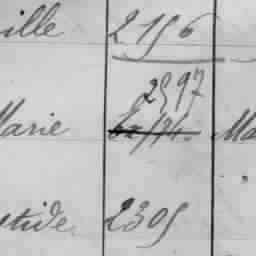 ille 2156
2597
Marie Ma
stide 2305